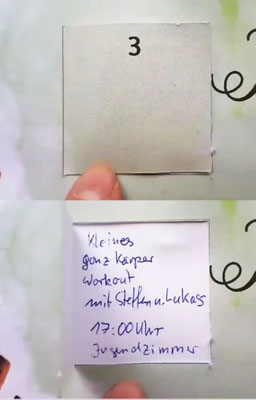 3
Kleines
ganz Körper
workout
mit Steffen u. Lukass
17:00 Uhr
Jugendzimmer